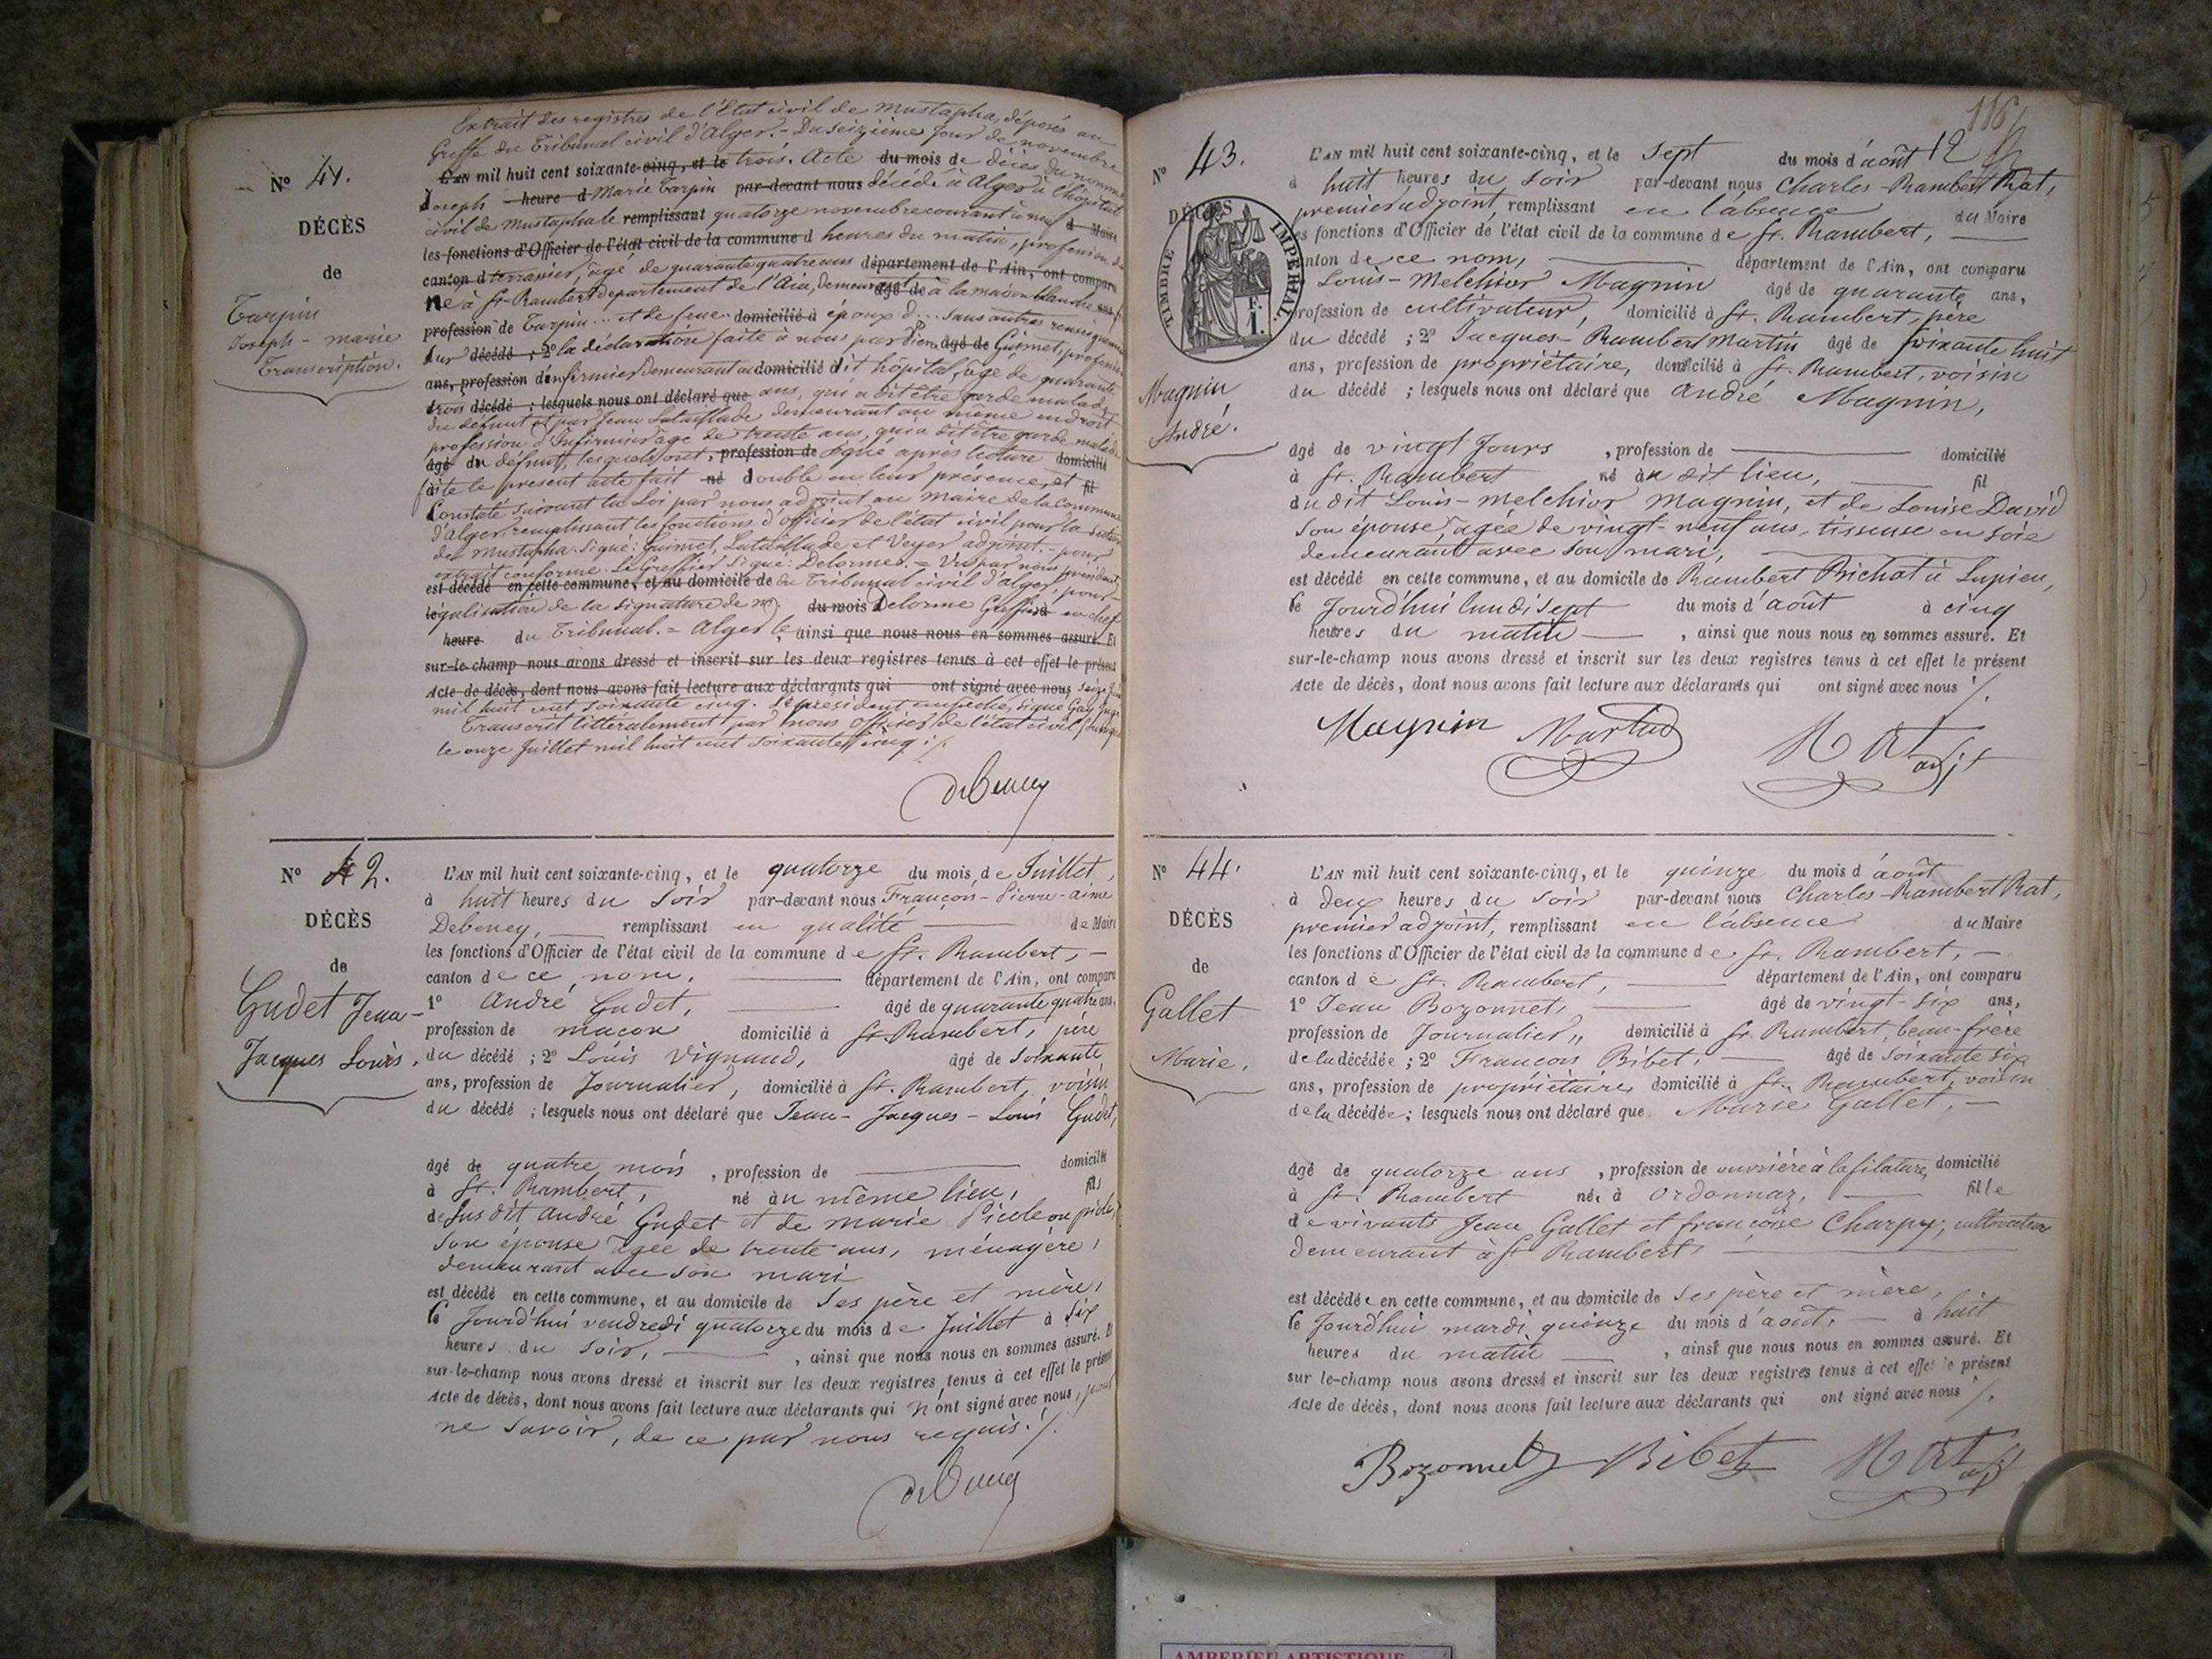 Extrait des registres de l'Etat civil de Mustapha, déposés au
Greffe du Tribunal civil d'Alger. - Du seizième jour de novembre
N° 41.
L'AN mil huit cent soixante-cinq, et le trois. Acte du mois de décès du nommé
Joseph heure d Marie Tarpin par-devant nous décédé à Alger à l'hôpital
DÉCÈS
civil de Mustapha le remplissant quatorze novembre courant à neuf d Maire
les fonctions d'Officier de l'état civil de la commune d heures du matin, profession de
de
canton d terrassier, âgé de quarante quatre ans département de l'Ain, ont comparu
né à St-Rambert département de l'Ain, demeurant âgé de à la maison blanche ans,
Tarpin
profession de Tarpin ... et de feue domicilié à époux d ... sans autres renseignemens
Joseph - marie
Sur décédé ; 2° la déclaration faite à nous par Pierre âgé de Guimet, profession
Transcription.
ans, profession d'infirmier demeurant au domicilié dit hôpital, âgé de quarante
trois décédé ; lesquels nous ont déclaré que ans, qui a dit être garde malade
du défunt et par Jean Lataillade demeurant au même endroit
profession d'Infirmier âgé de trente ans, qui a dit être garde malade
âgé du défunt, lesquels ont, profession de signé après lecture domicilié
faite le présent acte fait né double en leur présence, et fil
Constaté suivant la Loi par nous adjoint au Maire de la Commune
d'Alger remplissant les fonctions d'officier de l'état civil pour la section
de Mustapha. Signé: Guimet, Lataillade et Veyer adjoint. - pour
extrait conforme. Le Greffier Signé: Delormes. = Vu par nous président
est décédé en cette commune, et au domicile de du Tribunal civil d'Alger, pour
légalisation de la signature de M. du mois Delorme Greffier à en chef
heure du Tribunal. = Alger le ainsi que nous nous en sommes assuré. Et
sur-le-champ nous avons dressé et inscrit sur les deux registres tenus à cet effet le présent
Acte de décès, dont nous avons fait lecture aux déclarants qui ont signé avec nous seize Juin
mil huit cent soixante cinq. Le président empêché, signé Gay Juge
Transcrit littéralement par nous officier de l'état civil soussigné
le onze Juillet mil huit cent soixante cinq ./.
deBeney
N° 42.
L'AN mil huit cent soixante-cinq, et le quatorze du mois de Juillet,
à huit heures du soir par-devant nous François-Pierre-aimé
DÉCÈS
Debeney, remplissant en qualité de Maire
les fonctions d'Officier de l'état civil de la commune de St. Rambert, -
de
canton de ce nom, département de l'Ain, ont comparu
Gudet Jean-
1° André Gudet, âgé de quarante quatre ans,
profession de maçon domicilié à St. Rambert, père
Jacques Louis.
du décédé ; 2° Louis Vignaud, âgé de soixante
ans, profession de Journalier, domicilié à St. Rambert, voisin
du décédé ; lesquels nous ont déclaré que Jean-Jacques-Louis Gudet,
âgé de quatre mois, profession de domicilié
à St. Rambert, né au même lieu, fils
de susdit André Gudet et de Marie Picole ou picolet
son épouse âgée de trente ans, ménagère,
demeurant avec son mari
est décédé en cette commune, et au domicile de ses père et mère,
le Jourd'hui vendredi quatorze du mois de Juillet à six
heures du soir, , ainsi que nous nous en sommes assuré. Et
sur-le-champ nous avons dressé et inscrit sur les deux registres tenus à cet effet le présent
Acte de décès, dont nous avons fait lecture aux déclarants qui n'ont signé avec nous, pour
ne savoir, de ce par nous requis ./.
deBeney
116
12
N° 43.
L'AN mil huit cent soixante-cinq, et le sept du mois d'août
à huit heures du soir par-devant nous Charles-Rambert Rat,
DÉCÈS
premier adjoint, remplissant en l'absence du Maire
TIMBRE IMPÉRIAL
F. 1.
les fonctions d'Officier de l'état civil de la commune de St. Rambert,
canton de ce nom, département de l'Ain, ont comparu
Louis-Melchior Magnin âgé de quarante ans,
profession de cultivateur, domicilié à St. Rambert, père
du décédé ; 2° Jacques-Rambert Martin âgé de soixante huit
ans, profession de propriétaire, domicilié à St. Rambert, voisin
Magnin
André.
du décédé ; lesquels nous ont déclaré que André Magnin,
âgé de vingt Jours, profession de domicilié
à St. Rambert né au dit lieu, fil
dudit Louis-Melchior Magnin, et de Louise David
son épouse, âgée de vingt-neuf ans, tisseuse en soie
demeurant avec son mari,
est décédé en cette commune, et au domicile de Rambert Brichat à Lupieu,
le Jourd'hui lundi sept du mois d'août à cinq
heures du matin , ainsi que nous nous en sommes assuré. Et
sur-le-champ nous avons dressé et inscrit sur les deux registres tenus à cet effet le présent
Acte de décès, dont nous avons fait lecture aux déclarants qui ont signé avec nous ./.
Magnin Martin Rat adjt
N° 44.
L'AN mil huit cent soixante-cinq, et le quinze du mois d'août
à deux heures du soir par-devant nous Charles-Rambert Rat,
DÉCÈS
premier adjoint, remplissant en l'absence du Maire
les fonctions d'Officier de l'état civil de la commune de St. Rambert,
de
canton de St. Rambert, département de l'Ain, ont comparu
Gallet
1° Jean Bozonnet, âgé de vingt-six ans,
profession de Journalier, domicilié à St. Rambert, beau-frère
Marie.
de la décédée ; 2° François Bibet, âgé de soixante six
ans, profession de propriétaire, domicilié à St. Rambert, voisin
de la décédée ; lesquels nous ont déclaré que Marie Gallet, -
âgé de quatorze ans, profession de ouvrière à la filature, domicilié
à St. Rambert née à Ordonnaz, fille
de vivants Jean Gallet et françoise Charpy, cultivateurs
demeurant à St Rambert,
est décédée en cette commune, et au domicile de ses père et mère,
le Jourd'hui mardi quinze du mois d'août, à huit
heures du matin , ainsi que nous nous en sommes assuré. Et
sur le-champ nous avons dressé et inscrit sur les deux registres tenus à cet effet le présent
Acte de décès, dont nous avons fait lecture aux déclarants qui ont signé avec nous ./.
Bozonnet Bibet Rat adjt
AMBERIEU ARTISTIQUE